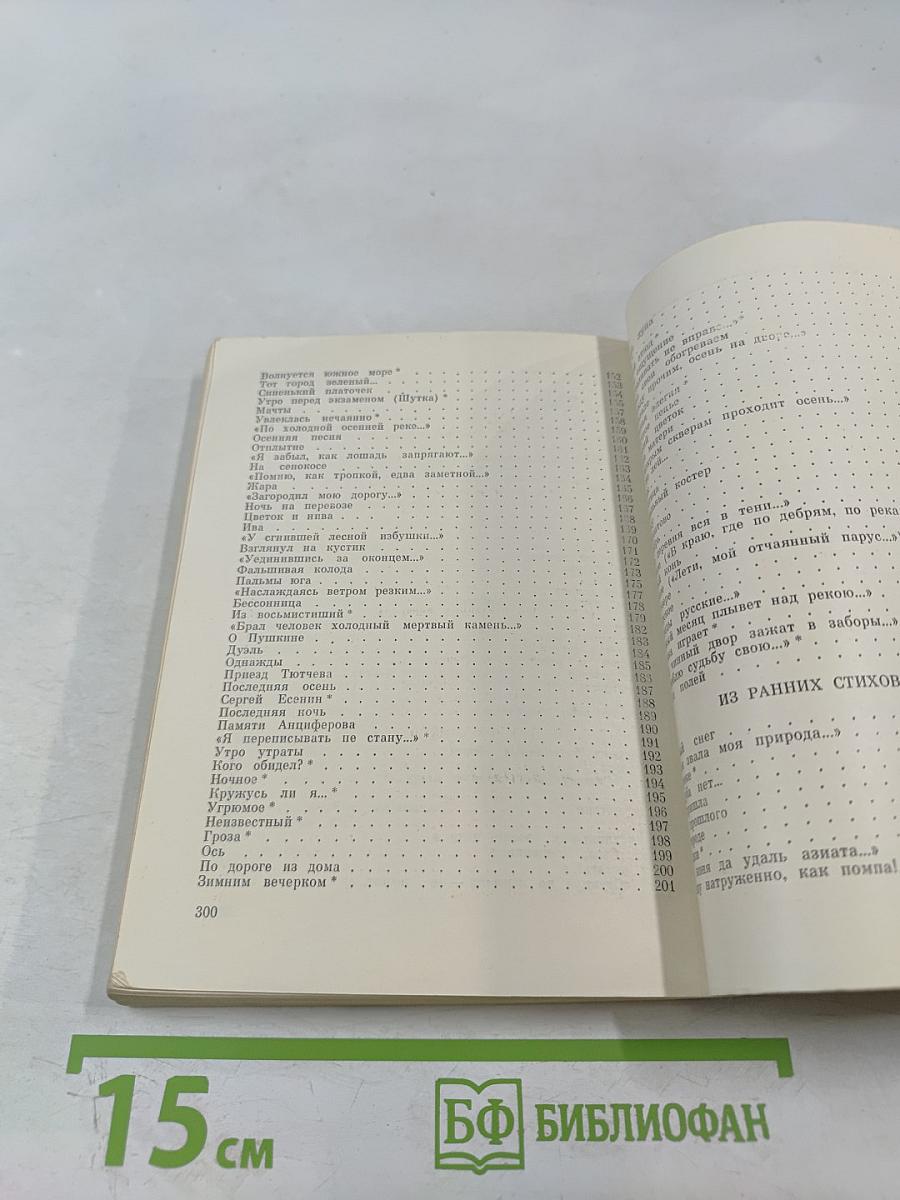 Волнуется южное море *
Тот город зеленый... 153
Синенький платочек 154
Утро перед экзаменом (Шутка) * 155
Мачты 157
Увлеклась нечаянно * 158
«По холодной осенней реке...» 159
Осенняя песня 160
Отплытие 161
«Я забыл, как лошадь запрягают...» 162
На сенокосе 163
«Помню, как тропкой, едва заметной...» 164
Жара 165
«Загородил мою дорогу...» 166
Ночь на перевозе 167
Цветок и нива 168
Ива 169
«У сгнившей лесной избушки...» 170
Взглянул на кустик 171
«Уединившись за оконцем...» 172
Фальшивая колода 173
Пальмы юга 175
«Наслаждаясь ветром резким...» 177
Бессонница 178
Из восьмистиший * 179
«Брал человек холодный мертвый камень...» 182
О Пушкине 183
Дуэль 184
Однажды 185
Приезд Тютчева
Последняя осень 187
Сергей Есенин * 188
Последняя ночь 189
Памяти Анциферова 190
«Я переписывать не стану...» * 191
Утро утраты 192
Кого обидел? * 193
Ночное * 194
Кружусь ли я... * 195
Угрюмое * 196
Неизвестный * 197
Гроза * 198
Ось 199
По дороге из дома 200
Зимним вечерком * 201
300
не вправе...» *
обогреваем
прочим, осень на дворе...»
цветок
матери
скверам проходит осень...»
костер
вся в тени...»
(«В краю, где по дебрям, по река
конь
(«Лети, мой отчаянный парус...»
русские...»
месяц плывет над рекою...»
играет *
двор зажат в заборы...»
судьбу свою...» *
полей
ИЗ РАННИХ СТИХОВ
снег
звала моя природа...»
нет...
да удаль азиата...»
натруженно, как помпа!
15 см
БФ БИБЛИОФАН